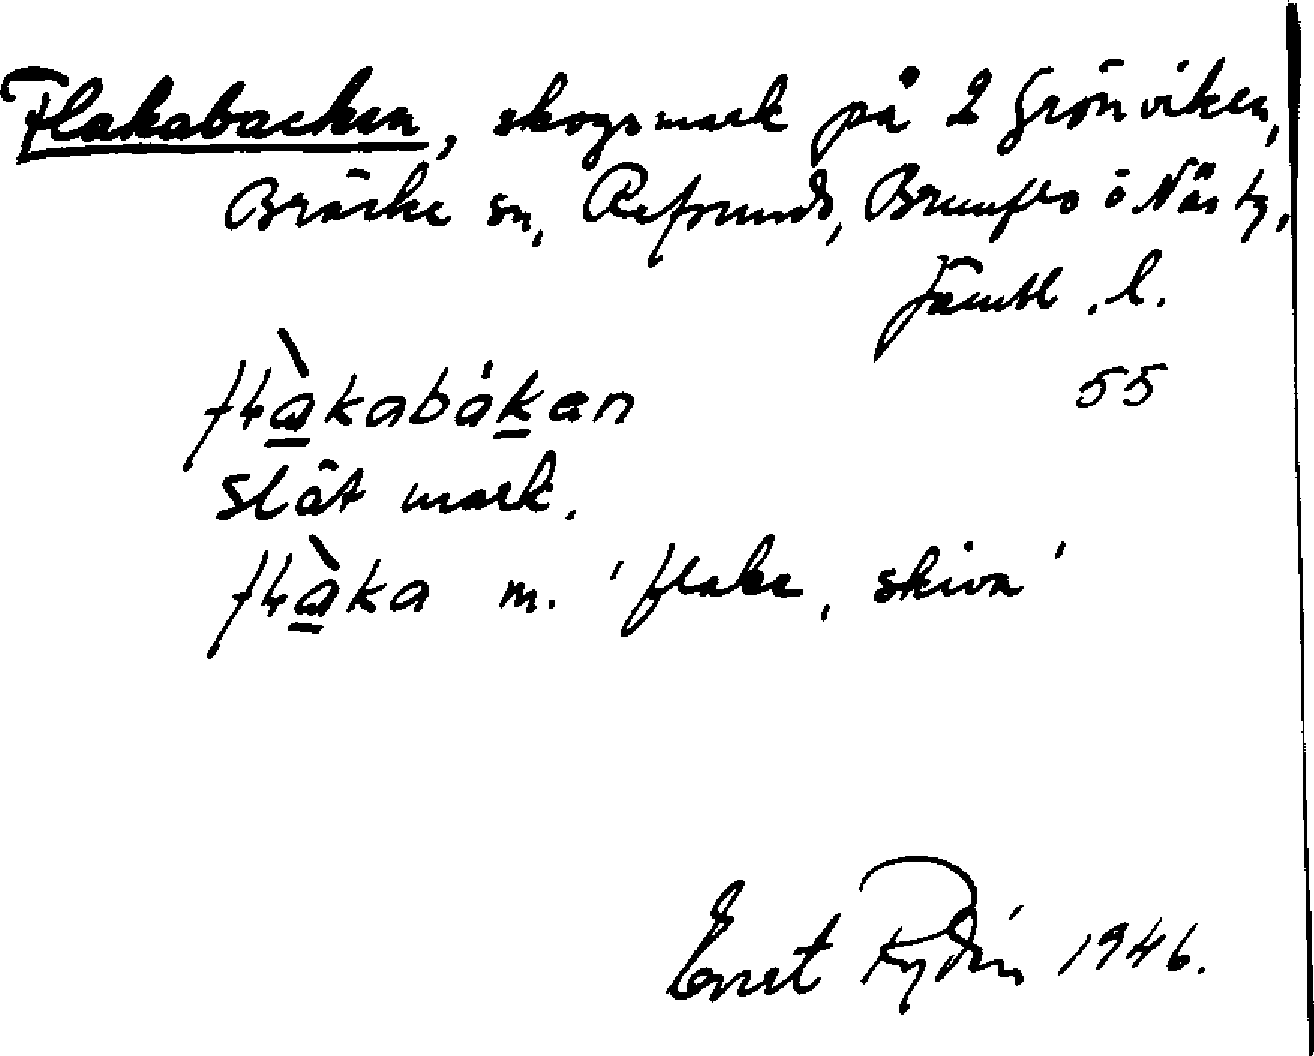 Flakabacken, skogsmark på 2 Grönviken,
Bräcke sn, Refsunds, Brunflo o Näs tg,
Jämtl. l.
55
fɬàkabákan
Slät mark.
fɬàka m. 'flake, skiva'
Ernst Rydén 1946.